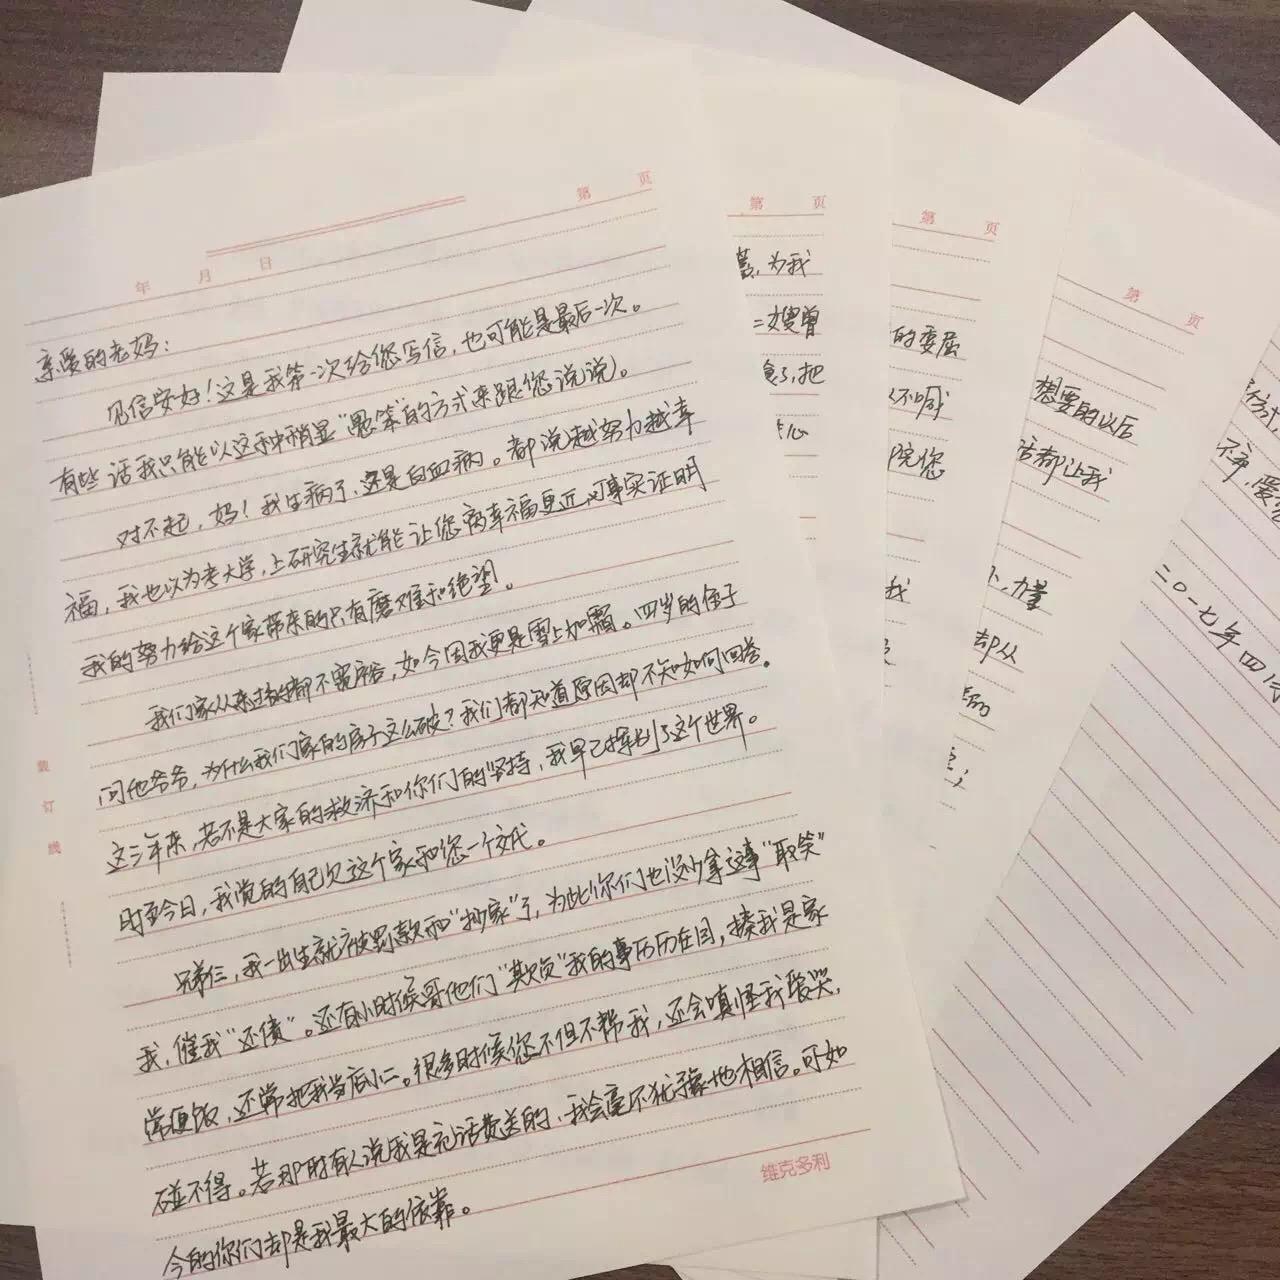 第 页
年 月 日
亲爱的老妈：
见信安好！这是我第一次给您写信，也可能是最后一次。
有些话我只能以这种稍显“愚笨”的方式来跟您说说。
对不起，妈！我生病了，还是白血病。都说越努力越幸
福，我也以为考大学，上研究生就能让您离幸福更近，可事实证明
我的努力给这个家带来的只有磨难和绝望。
我们家从来过的都不宽裕，如今因我更是雪上加霜。四岁的侄子
问他爷爷，为什么我们家的房子这么破？我们都知道原因却不知如何回答。
这三年来，若不是大家的救济和你们的坚持，我早已挥别了这个世界。
时至今日，我觉的自己欠这个家和您一个交代。
兄弟仨，我一出生就被罚款和“抄家”了，为此你们也没少拿这事“取笑”
我，催我“还债”。还有小时候哥他们“欺负”我的事历历在目，揍我是家
常便饭，还常把我当店小二。很多时候您不但不帮我，还会嗔怪我爱哭，
碰不得。若那时有人说我是充话费送的，我会毫不犹豫地相信。可如
今的你们却是我最大的依靠。
装
订
线
维克多利
第 页
，为我
二嫂曾
，把
心
第 页
的委屈
不喊
院您
我
第 页
想要的以后
都让我
，力量
却从
二〇一七年四